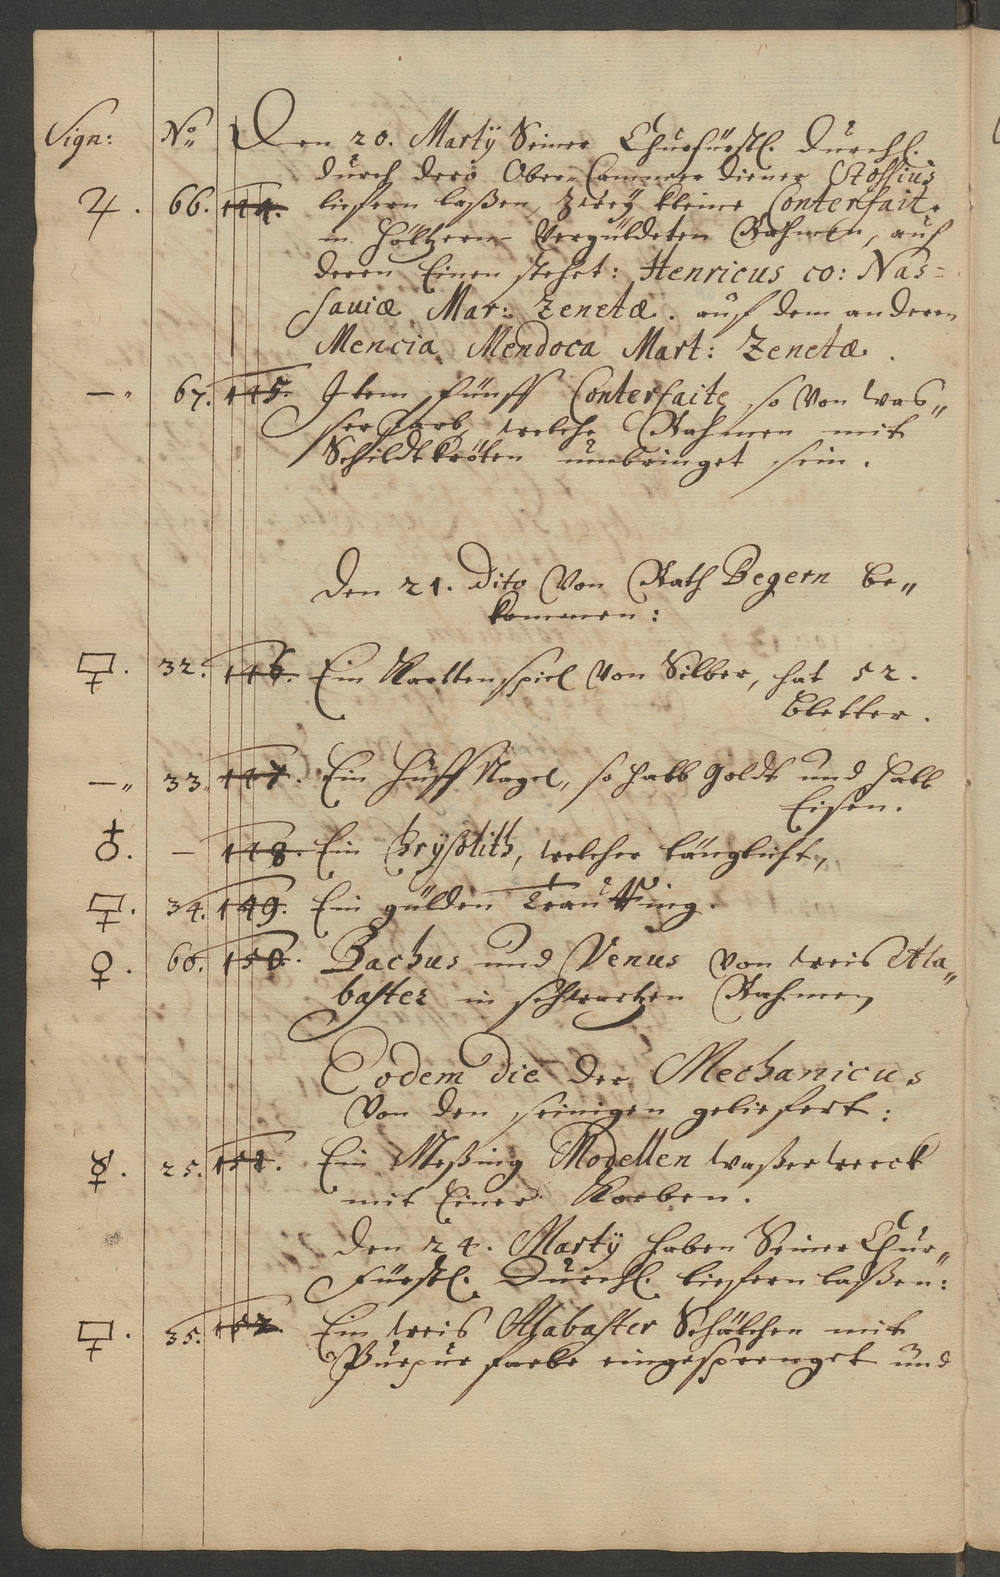 Sign: No Den 20. Martÿ Seiner Churfürstl. Durchl.
durch dero Ober-Cammer diener Stoßius
♃. 66. 144. liefern laßen, zweÿ kleine Conterfait.
in höltzern Vergüldeten Rahmen, auf
deren Einen stehet: Henricus co: Nas=
sauiæ Mar: Zenetæ. auf dem anderen
Mencia Mendoca Mart: Zenetæ.
—„ 67. 145. Item fünff Conterfaite, so Von was„
ser farb, welche Rahmen mit
Schildtkröten umbringet sein.
Den 21. Dito Von Rath Begern be„
kommen:
32. 146. Ein Kartenspiel Von Silber, hat 52.
bletter.
—„ 33. 147. Ein Hüff Nagel, so halb goldt und halb
Eisen.
♁. — 148. Ein Crÿsolith, welcher länglicht,
34. 149. Ein gülden Trauring.
♀. 60. 150. Bachus und Venus Von weis Ala„
baster in schwartzen Rahmen,
Eodem die Der Mechanicus
Von den seinigen geliefert:
☿. 25. 151. Ein Meßing Modellen waßerwerck
mit Einer Korben.
Den 24. Martÿ haben Seine Chur„
Fürstl. Durchl. liefern laßen:
35. 152. Ein weis Alabaster Schälchen mit
Purpur farbe eingesprenget und